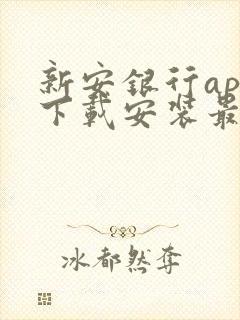 新安银行ap
下载安装最
冰都然夺